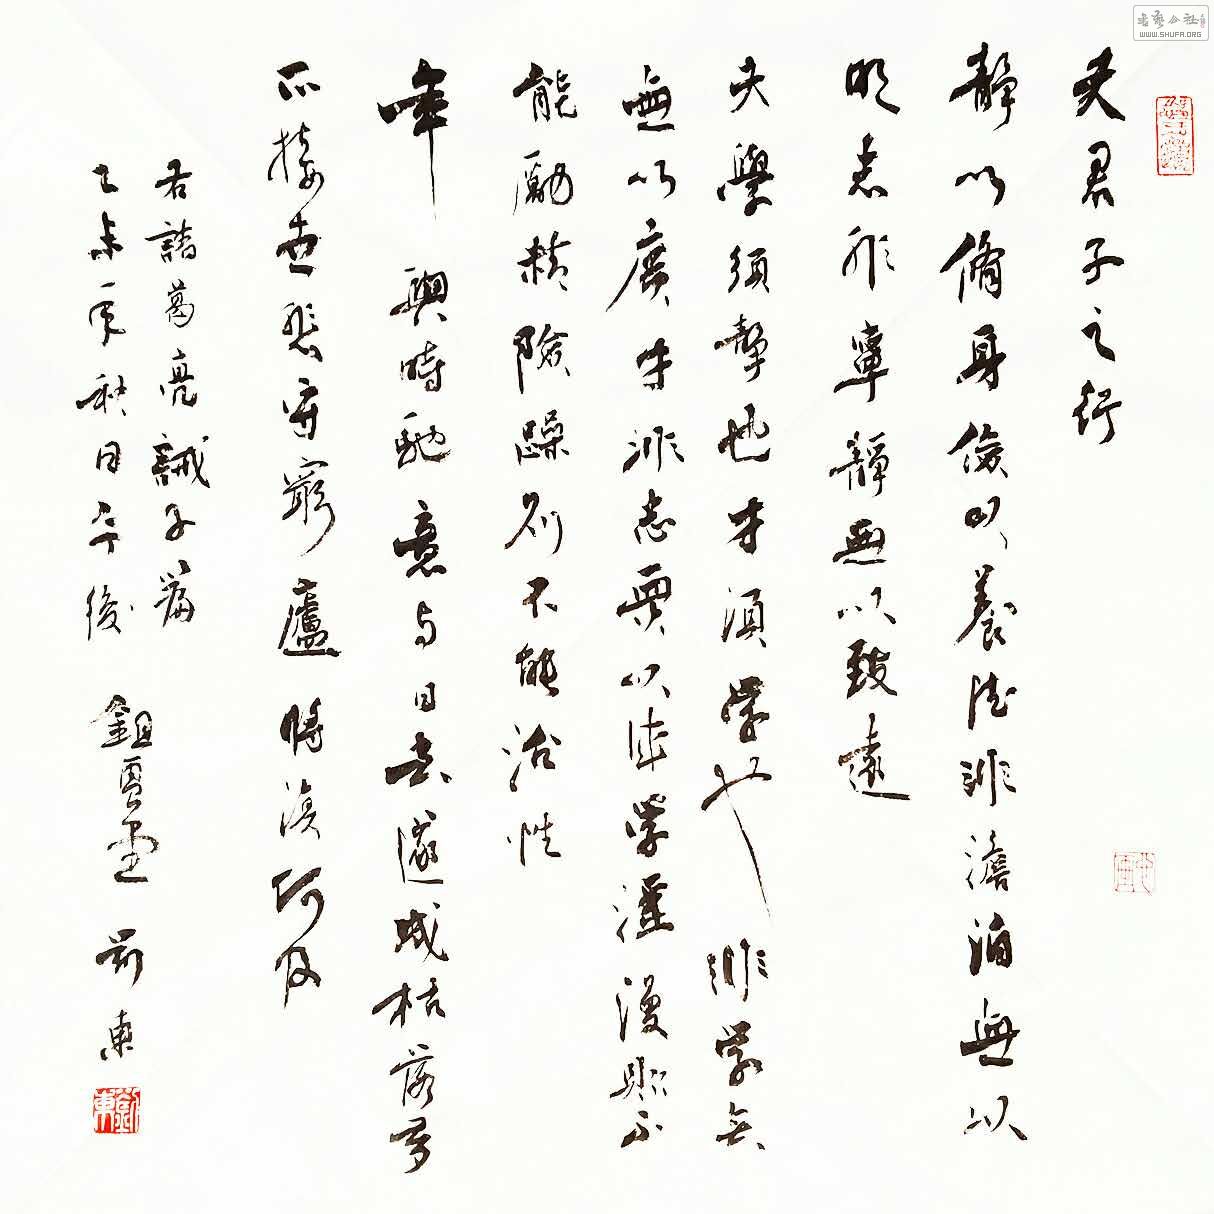 夫君子之行
靜以脩身儉以養德非澹泊無以
明志非寧靜無以致遠
夫學須靜也才須学也非学无
無以廣才非志無以成学淫漫則不
能勵精險躁則不能治性
年與時馳意与日去遂成枯落多
不接世悲守窮廬將復何及
右諸葛亮誡子篇
乙未年秋日午後 鉏雲堂 劉東
劉東
書藝公社
WWW.SHUFA.ORG